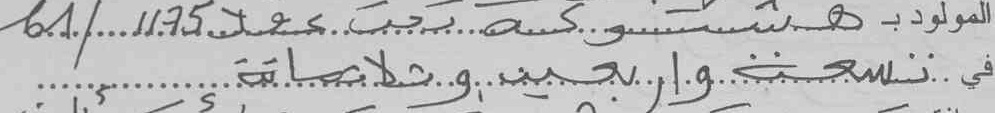 المولود بـ هشتوكة تحت عدد 1175/61
في تسعة واربعين وثلاثمائة